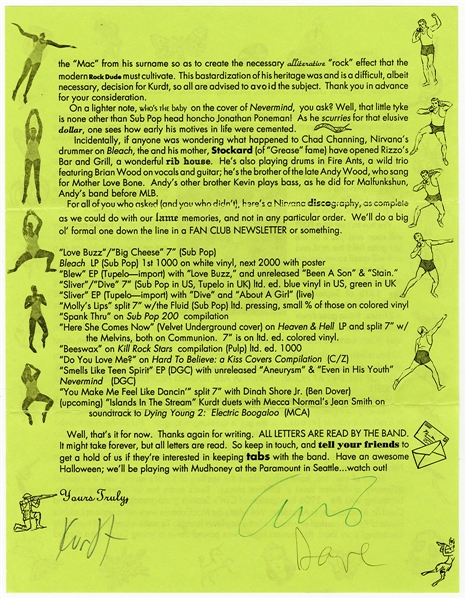 the "Mac" from his surname so as to create the necessary alliterative "rock" effect that the
modern Rock Dude must cultivate. This bastardization of his heritage was and is a difficult, albeit
necessary, decision for Kurdt, so all are advised to avoid the subject. Thank you in advance
for your consideration.
On a lighter note, who's the baby on the cover of Nevermind, you ask? Well, that little tyke
is none other than Sub Pop head honcho Jonathan Poneman! As he scurries for that elusive
dollar, one sees how early his motives in life were cemented.
Incidentally, if anyone was wondering what happened to Chad Channing, Nirvana's
drummer on Bleach, the and his mother, Stockard (of "Grease" fame) have opened Rizzo's
Bar and Grill, a wonderful rib house. He's also playing drums in Fire Ants, a wild trio
featuring Brian Wood on vocals and guitar; he's the brother of the late Andy Wood, who sang
for Mother Love Bone. Andy's other brother Kevin plays bass, as he did for Malfunkshun,
Andy's band before MLB.
For all of you who asked (and you who didn't), here's a Nirvana discography, as complete
as we could do with our lame memories, and not in any particular order. We'll do a big
ol' formal one down the line in a FAN CLUB NEWSLETTER or something.
"Love Buzz"/"Big Cheese" 7" (Sub Pop)
Bleach LP (Sub Pop) 1st 1000 on white vinyl, next 2000 with poster
"Blew" EP (Tupelo—import) with "Love Buzz," and unreleased "Been A Son" & "Stain."
"Sliver"/"Dive" 7" (Sub Pop in US, Tupelo in UK) ltd. ed. blue vinyl in US, green in UK
"Sliver" EP (Tupelo—import) with "Dive" and "About A Girl" (live)
"Molly's Lips" split 7" w/the Fluid (Sub Pop) ltd. pressing, small % of those on colored vinyl
"Spank Thru" on Sub Pop 200 compilation
"Here She Comes Now" (Velvet Underground cover) on Heaven & Hell LP and split 7" w/
the Melvins, both on Communion. 7" is on ltd. ed. colored vinyl.
"Beeswax" on Kill Rock Stars compilation (Pulp) ltd. ed. 1000
"Do You Love Me?" on Hard To Believe: a Kiss Covers Compilation (C/Z)
"Smells Like Teen Spirit" EP (DGC) with unreleased "Aneurysm" & "Even in His Youth"
Nevermind (DGC)
"You Make Me Feel Like Dancin'" split 7" with Dinah Shore Jr. (Ben Dover)
(upcoming) "Islands In The Stream" Kurdt duets with Mecca Normal's Jean Smith on
soundtrack to Dying Young 2: Electric Boogaloo (MCA)
Well, that's it for now. Thanks again for writing. ALL LETTERS ARE READ BY THE BAND.
It might take forever, but all letters are read. So keep in touch, and tell your friends to
get a hold of us if they're interested in keeping tabs with the band. Have an awesome
Halloween; we'll be playing with Mudhoney at the Paramount in Seattle...watch out!
Yours Truly
Kurdt
Dave